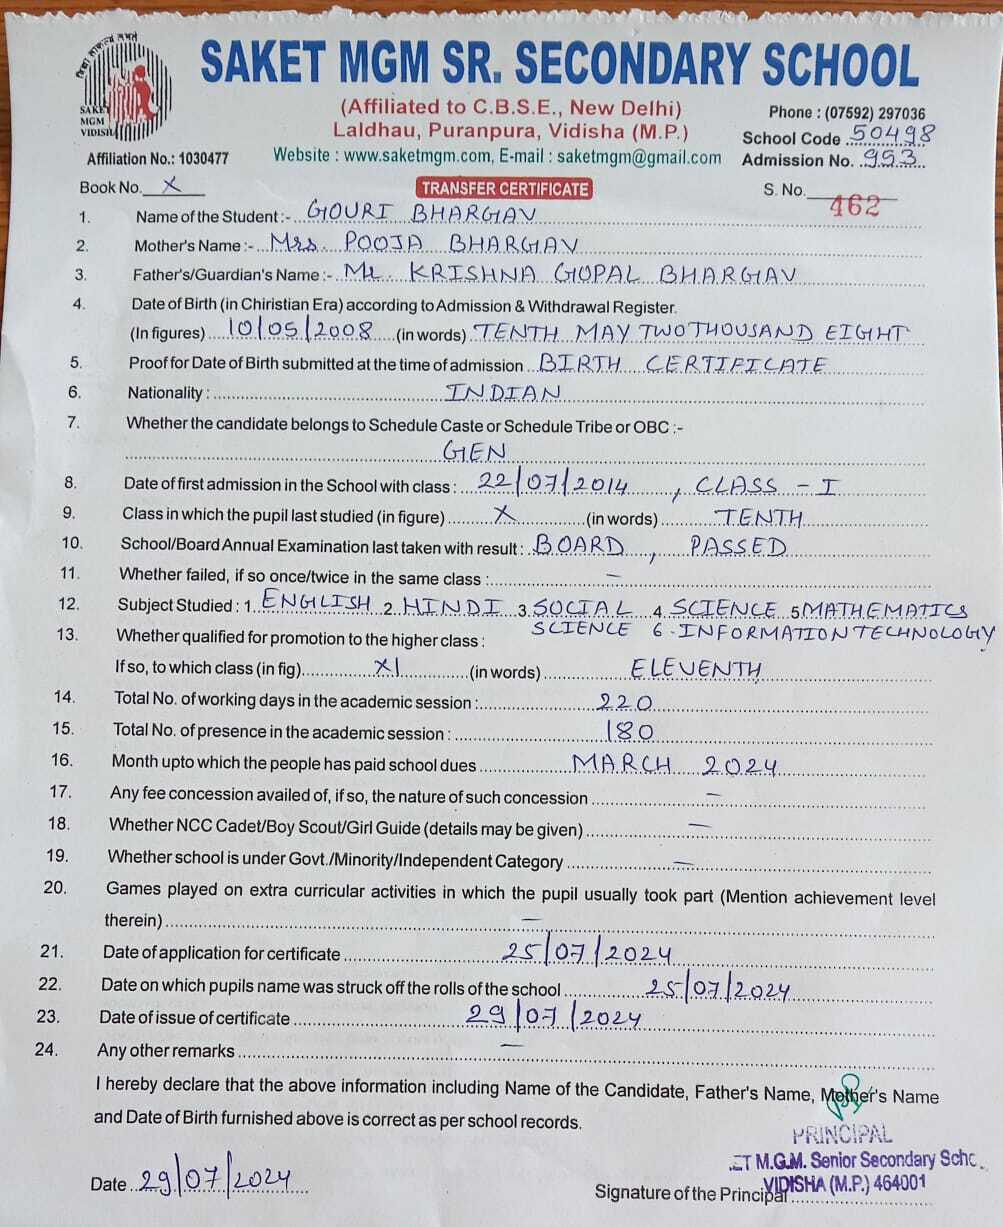 SAKET MGM SR. SECONDARY SCHOOL
SAKET
MGM
VIDISHA
(Affiliated to C.B.S.E., New Delhi)
Laldhau, Puranpura, Vidisha (M.P.)
Phone : (07592) 297036
School Code 50498
Affiliation No.: 1030477
Website : www.saketmgm.com, E-mail : saketmgm@gmail.com
Admission No. 953
Book No. X
TRANSFER CERTIFICATE
S. No. 462
1. Name of the Student :- GOURI BHARGAV
2. Mother's Name :- Mrs. POOJA BHARGAV
3. Father's/Guardian's Name :- Mr. KRISHNA GOPAL BHARGAV
4. Date of Birth (in Chiristian Era) according to Admission & Withdrawal Register.
(In figures) 10/05/2008 (in words) TENTH MAY TWO THOUSAND EIGHT
5. Proof for Date of Birth submitted at the time of admission BIRTH CERTIFICATE
6. Nationality : INDIAN
7. Whether the candidate belongs to Schedule Caste or Schedule Tribe or OBC :-
GEN
8. Date of first admission in the School with class : 22/07/2014, CLASS - I
9. Class in which the pupil last studied (in figure) X (in words) TENTH
10. School/Board Annual Examination last taken with result : BOARD, PASSED
11. Whether failed, if so once/twice in the same class : -
12. Subject Studied : 1. ENGLISH 2. HINDI 3. SOCIAL 4. SCIENCE 5 MATHEMATICS
SCIENCE 6. INFORMATION TECHNOLOGY
13. Whether qualified for promotion to the higher class :
If so, to which class (in fig) XI (in words) ELEVENTH
14. Total No. of working days in the academic session : 220
15. Total No. of presence in the academic session : 180
16. Month upto which the people has paid school dues MARCH 2024
17. Any fee concession availed of, if so, the nature of such concession -
18. Whether NCC Cadet/Boy Scout/Girl Guide (details may be given) -
19. Whether school is under Govt./Minority/Independent Category -
20. Games played on extra curricular activities in which the pupil usually took part (Mention achievement level
therein) -
21. Date of application for certificate 25/07/2024
22. Date on which pupils name was struck off the rolls of the school 25/07/2024
23. Date of issue of certificate 29/07/2024
24. Any other remarks -
I hereby declare that the above information including Name of the Candidate, Father's Name, Mother's Name
and Date of Birth furnished above is correct as per school records.
PRINCIPAL
ET M.G.M. Senior Secondary Scho
VIDISHA (M.P.) 464001
Date 29/07/2024
Signature of the Principal